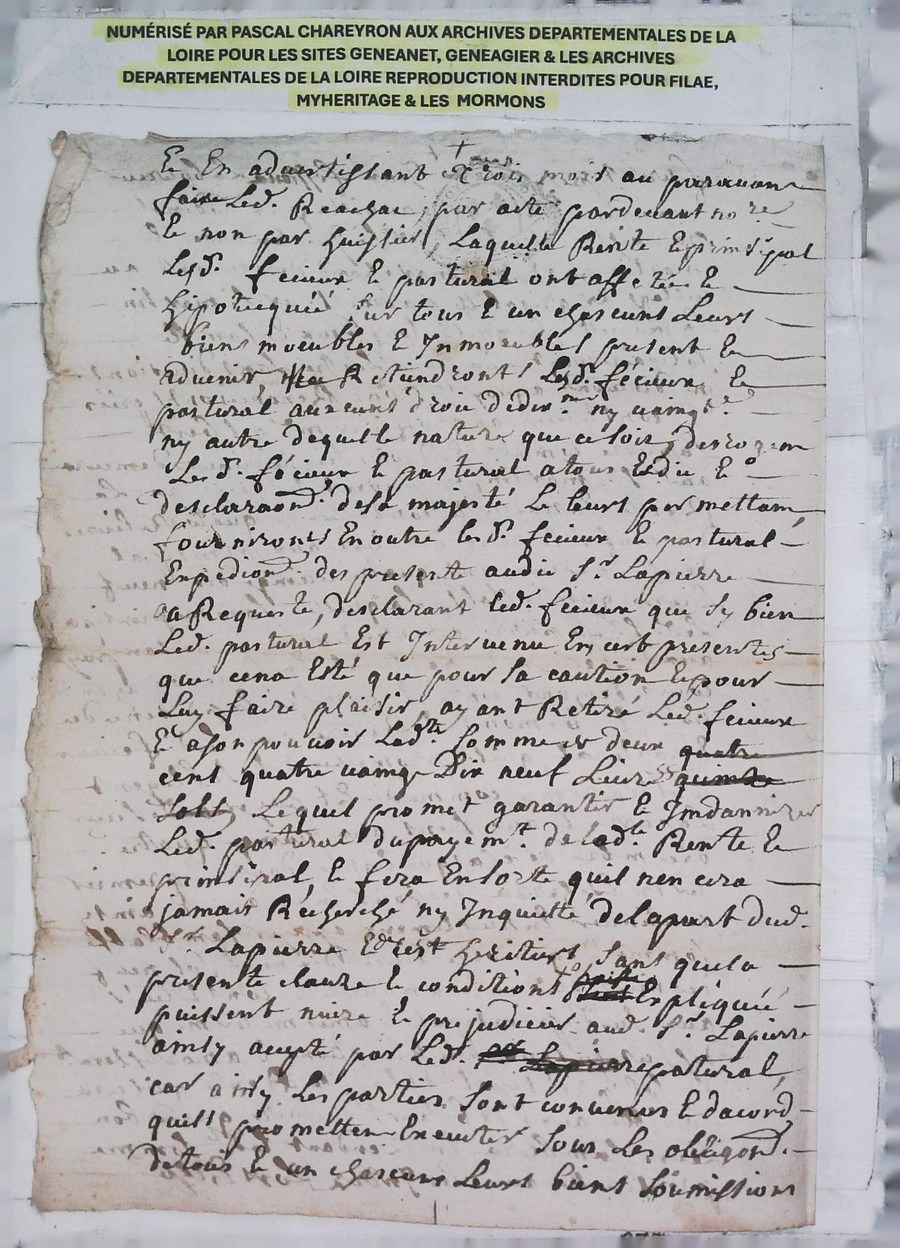 NUMÉRISÉ PAR PASCAL CHAREYRON AUX ARCHIVES DEPARTEMENTALES DE LA
LOIRE POUR LES SITES GENEANET, GENEAGIER & LES ARCHIVES
DEPARTEMENTALES DE LA LOIRE REPRODUCTION INTERDITES POUR FILAE,
MYHERITAGE & LES MORMONS
E En advertissant trois mois au paravant
faire Led. Reachat, par acte pardevant no.re
E non par huissier, Laquelle Rente E prinsipal
Lesd. fecieux E pastural ont affetée E
hipotequéé sur tous E un chascuns Leurs
biens moeubles E Inmoeubles present E
advenir, Retiendront Lesd. fécieux E
pastural aucuns droit ny
ny autre de quelle nature que ce soit, desrogeant
Lesd. fécieux E pastural a tous Edit E
desclaraon. de sa majesté Le leurs permettant
fournironts En outre lesd. fecieux E pastural
Enpedion. des presente audit Sr. Lapierre
sa Requeste, desclarant led. fecieux que sy bien
Led. pastural Est Intervenu En cest presentes
que cena Esté que pour sa caution E pour
Luy faire plaisir, ayant Retiré Led. fecieux
E a son pouvoir Ladte. somme de deux quatre
cent quatre vaingt Dix neuf Livres quinze
Solt, Lequel promet garantir E Imdannizer
Led. pastural du payemt. de ladte. Rente E
prinsipal, E fera En sorte quil nen cera
jamais Recherché ny Inquietté de la part dud.
Sr. Lapierre E heritiers, sans que la
presente clauze E conditions Expliquéé
puissent nuire E prejudicier aud. Sr. Lapierre
ainsy acepté par Led. Lapierre patural,
car ainsy Les parties sont convenus E dacord
quils promettent Executer sous Les obligaon.
de tous E un chascuns Leurs biens soumissions